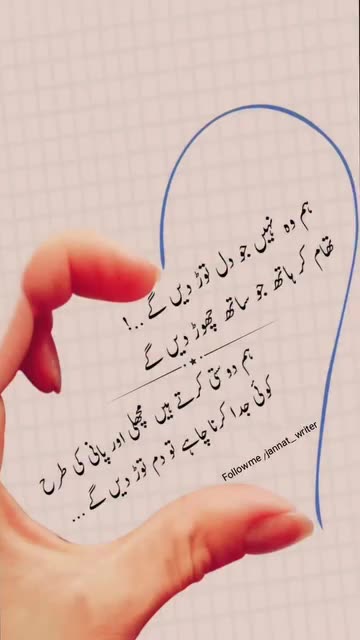 ہم وہ نہیں جو دل توڑ دیں گے ..!
تھام کر ہاتھ جو ساتھ چھوڑ دیں گے
ہم دوستی کرتے ہیں مچھلی اور پانی کی طرح
کوئی جدا کرنا چاہے تو دم توڑ دیں گے ...
Followme /jannat_writer